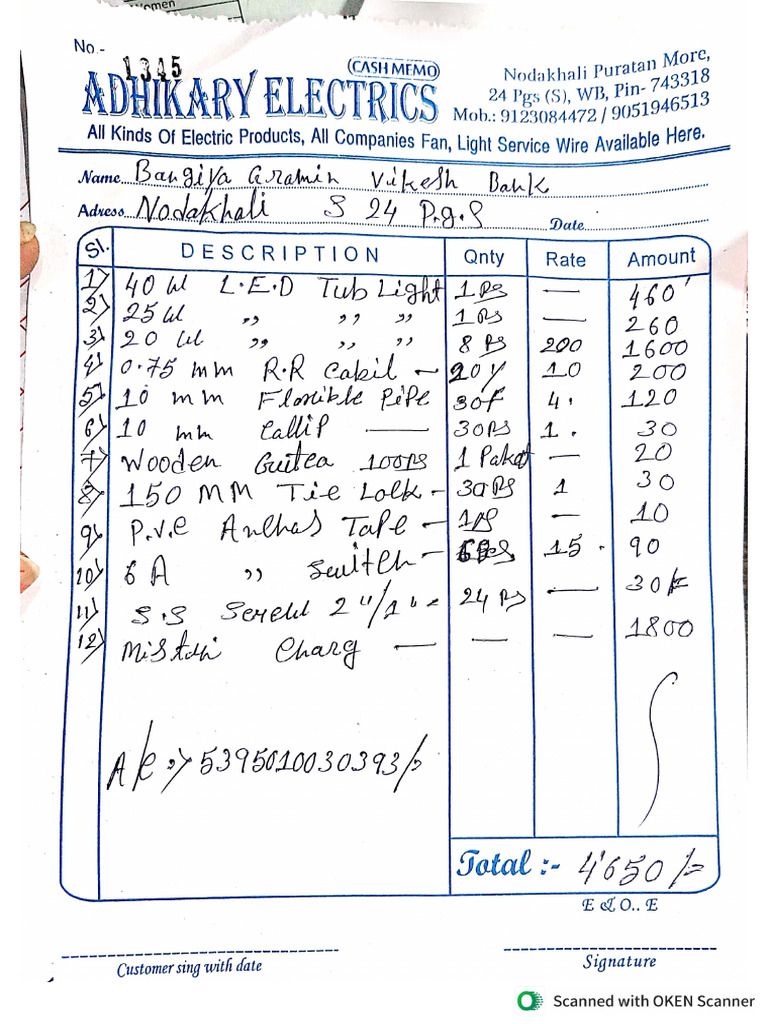 omen
No.- 1345
CASH MEMO
ADHIKARY ELECTRICS
Nodakhali Puratan More,
24 Pgs (S), WB, Pin- 743318
Mob.: 9123084472 / 9051946513
All Kinds Of Electric Products, All Companies Fan, Light Service Wire Available Here.
Name Bangiya Gramin Vikesh Bank
Adress Nodakhali S 24 P.g.S Date
Sl. DESCRIPTION Qnty Rate Amount
1) 40 W L.E.D Tub Light 1 Ps — 460
2) 25 W ,, ,, ,, 1 Ps — 260
3) 20 W ,, ,, ,, 8 Ps 200 1600
4) 0.75 mm R.R Cabil — 20Y 10 200
5) 10 mm Flonible Pipe 30f 4. 120
6) 10 mm Callip — 30Ps 1. 30
7) Wooden Guitea 100Ps 1 Paket — 20
8) 150 MM Tie Lolk - 30Ps 1 30
9) P.V.C Tape — 1Ps — 10
10) 6 A ,, Switch — 15. 90
11) S.S Screw 2"/1" = 24 Ps — 30
12) Mistdi Charg — — — 1800
A/C :-> 5395010030393/-
Total :- 4'650/=
E & O.. E
Customer sing with date
Signature
Scanned with OKEN Scanner